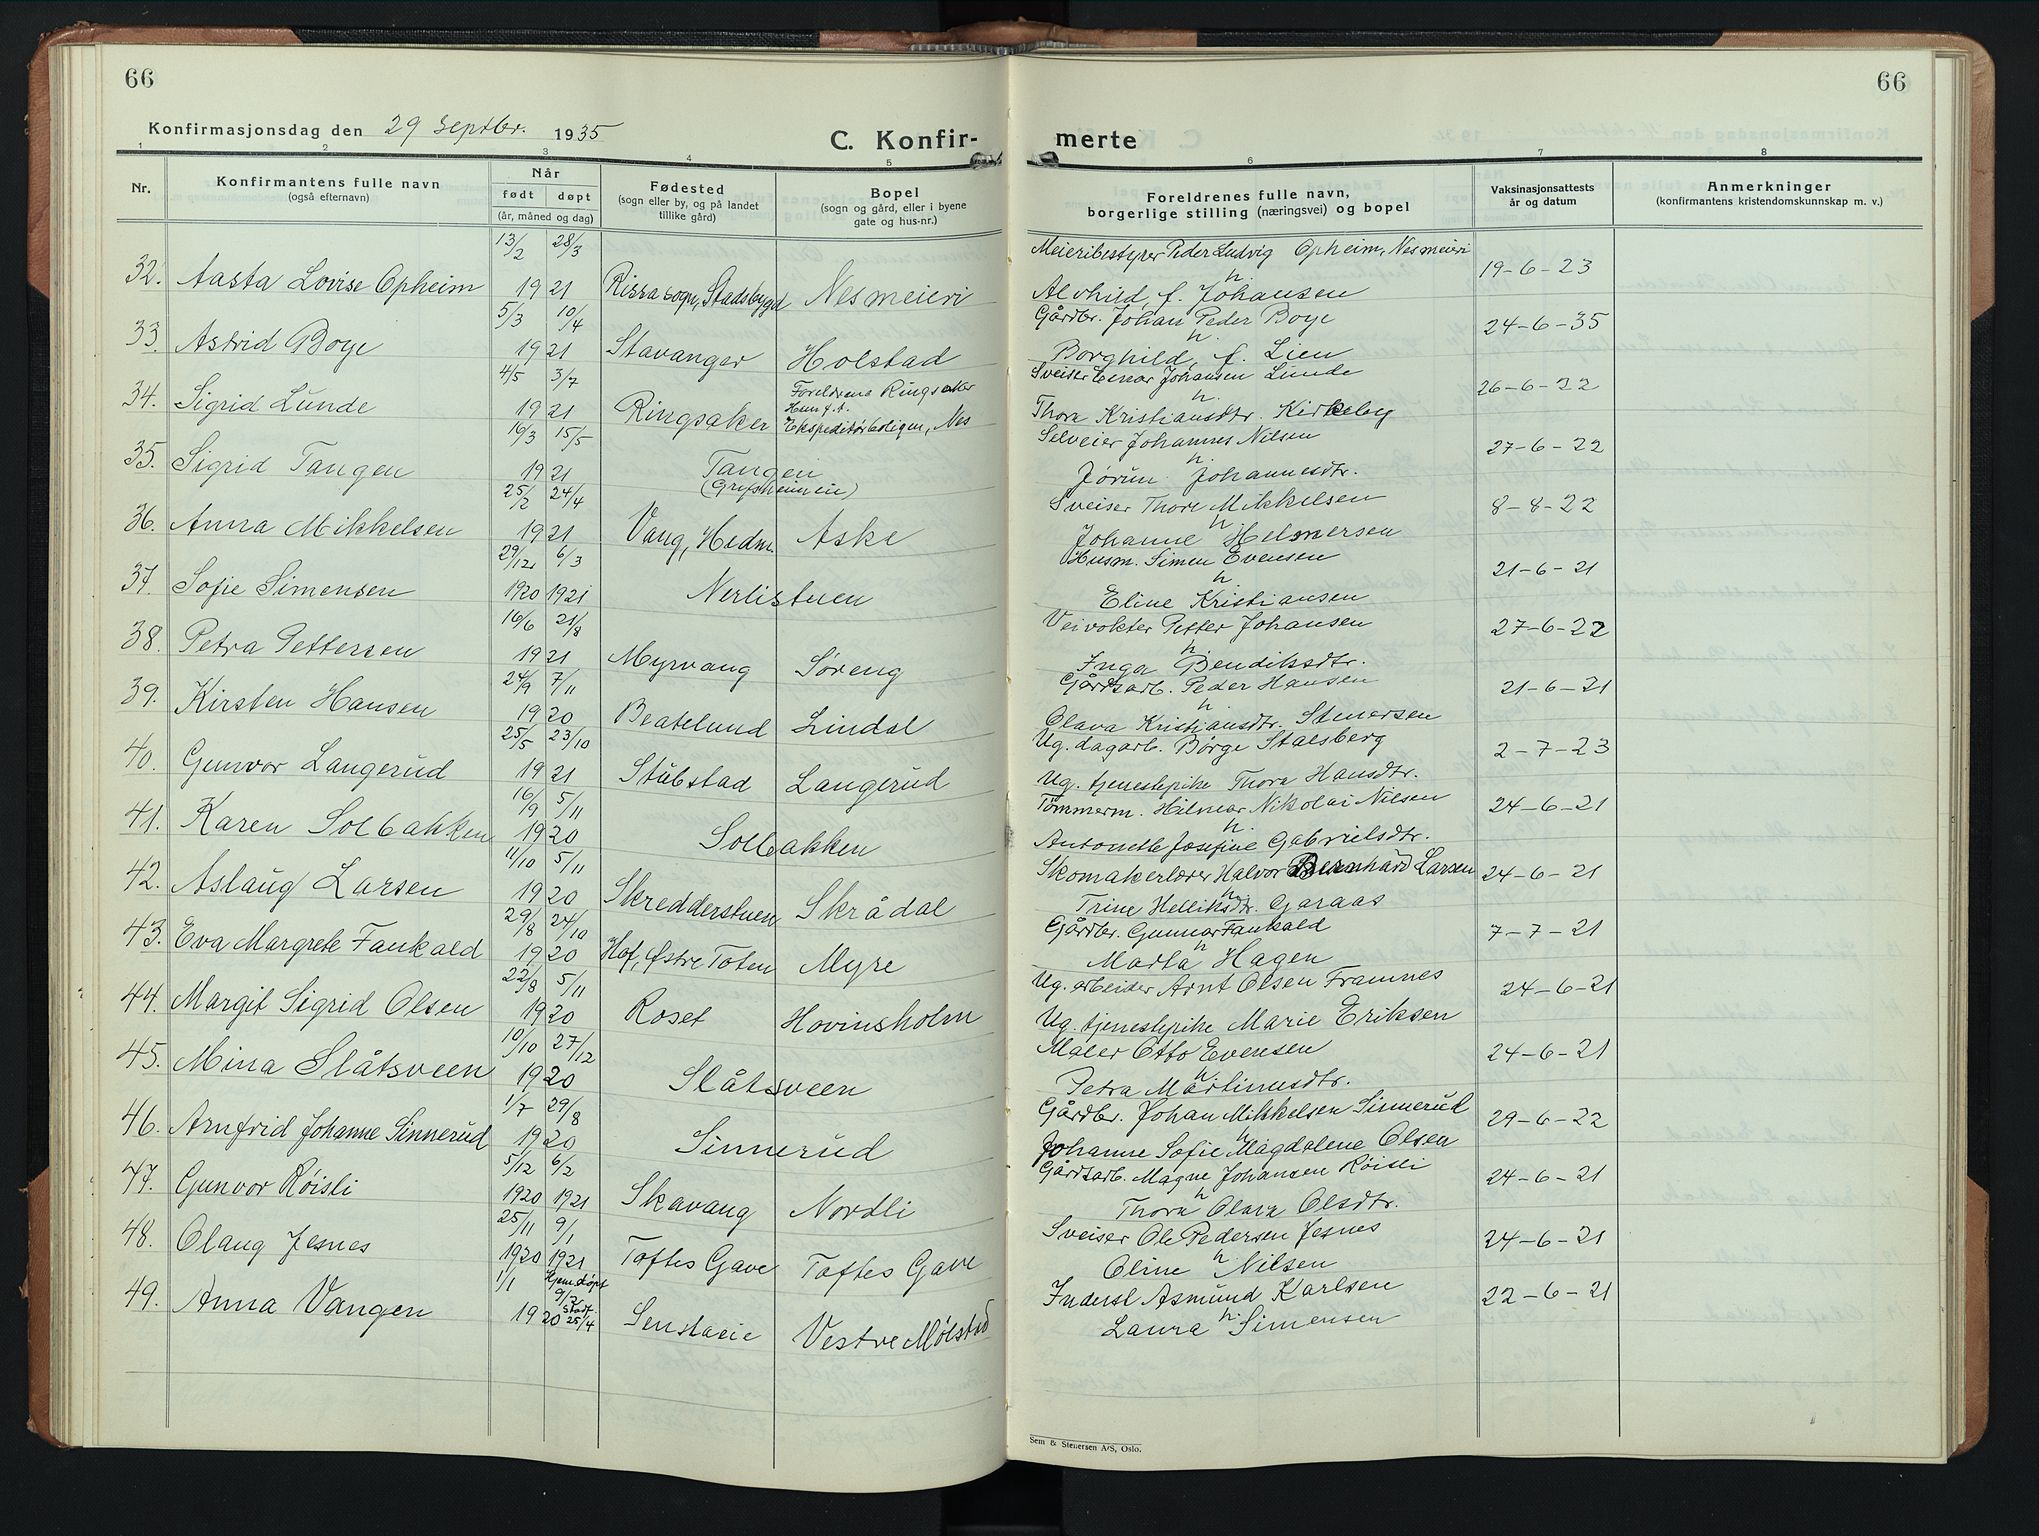 66
66
Konfirmasjonsdag den 29 Septbr. 1935
C. Konfir-
merte
1 2 3 4 5 6 7 8
Nr.
Konfirmantens fulle navn
(også efternavn)
Når
født døpt
(år, måned og dag)
Fødested
(sogn eller by, og på landet
tillike gård)
Bopel
(sogn og gård, eller i byene
gate og hus-nr.)
Foreldrenes fulle navn,
borgerlige stilling (næringsvei) og bopel
Vaksinasjonsattests
år og datum
Anmerkninger
(konfirmantens kristendomskunnskap m. v.)
13/2 28/3 Meieribestyrer Peder Ludvig Opheim, Nesmeieri
32. Aasta Lovise Opheim 1921 Rissa sogn, Stadsbygd Nesmeieri h. 19-6-23
Alvhild, f. Johansen
5/3 10/4 Gårdbr. Johan Peder Boye
33. Astrid Boye 1921 Stavanger Holstad h. 24-6-35
Borghild, f. Lien
4/5 3/7 Foreldrene Ringsaker Sveiser Einar Johansen Lunde
34. Sigrid Lunde 1921 Ringsaker Hun f.t. Ekspeditørboligen, Nes h. 26-6-22
Thora Kristiansdtr. Kirkeby
16/3 15/5 Selveier Johannes Nilsen
35. Sigrid Tangen 1921 Tangen h. 27-6-22
Jørun Johannesdtr.
25/2 24/4 Sveiser Thore Mikkelsen
36. Anna Mikkelsen 1921 Vang, Hedm. Aske h 8-8-22
Johanne Helmersen
29/12 6/3 Husm. Simen Evensen
37. Sofie Simensen 1920 1921 Nerlistuen h 21-6-21
Eline Kristiansen
16/6 21/8 Veivokter Petter Johansen
38. Petra Pettersen 1921 Myrvang Søreng h. 27-6-22
Inga Bendiksdtr.
24/9 7/11 Gårdsarb. Peder Hansen
39. Kirsten Hansen 1920 Beatelund Lindal h. 21-6-21
Olava Kristiansdtr. Stenersen
25/5 23/10 Ug. dagarb. Børge Stalsberg
40. Gunvor Langerud 1921 Stubstad Langerud 2-7-23
Ug. tjenestepike Thora Hansdtr.
16/9 5/11 Tømmerm. Hilmar Nikolai Nilsen
41. Karen Solbakken 1920 Solbakken h. 24-6-21
Antonette Josefine Gabrielsdtr.
11/10 5/11 Skomakerlærer Halvor Bernhard Larsen
42. Aslaug Larsen 1920 Skredderstuen Skrådal h 24-6-21
Trine Helliksdtr. Garaas
29/8 24/10 Gårdbr. Gunnar Fankald
43. Eva Margrete Fankald 1920 Hof, Østre Toten Myre h 7-7-21
Marta Hagen
22/8 5/11 Ug. arbeider Arnt Olsen Framnes
44. Margit Sigrid Olsen 1920 Roset Hovinsholm 24-6-21
Ug. tjenestepike Marie Eriksen
10/10 27/12 Maler Otto Evensen
45. Mina Slåtsveen 1920 Slåtsveen h. 24-6-21
Petra Martinusdtr.
1/7 29/8 Gårdbr. Johan Mikkelsen Sinnerud
46. Arnfrid Johanne Sinnerud 1920 Sinnerud h 29-6-22
Johanne Sofie Magdalene Olsen
5/12 6/2 Gårdsarb. Magne Johansen Røisli
47. Gunvor Røisli 1920 1921 Skavang Nordli h 24-6-21
Thora Olava Olsdtr.
25/11 9/1 Sveiser Ole Pedersen Jesnes
48. Olaug Jesnes 1920 1921 Toftes Gave Toftes Gave h 24-6-21
Oline Nilsen
1/1 Hjemdøpt 9/2 Inderst Asmund Karlsen
49. Anna Vangen 1920 stadf. 25/4 Vestre Mølstad h. 22-6-21
Laura Simensen
Sem & Stenersen A/S, Oslo.